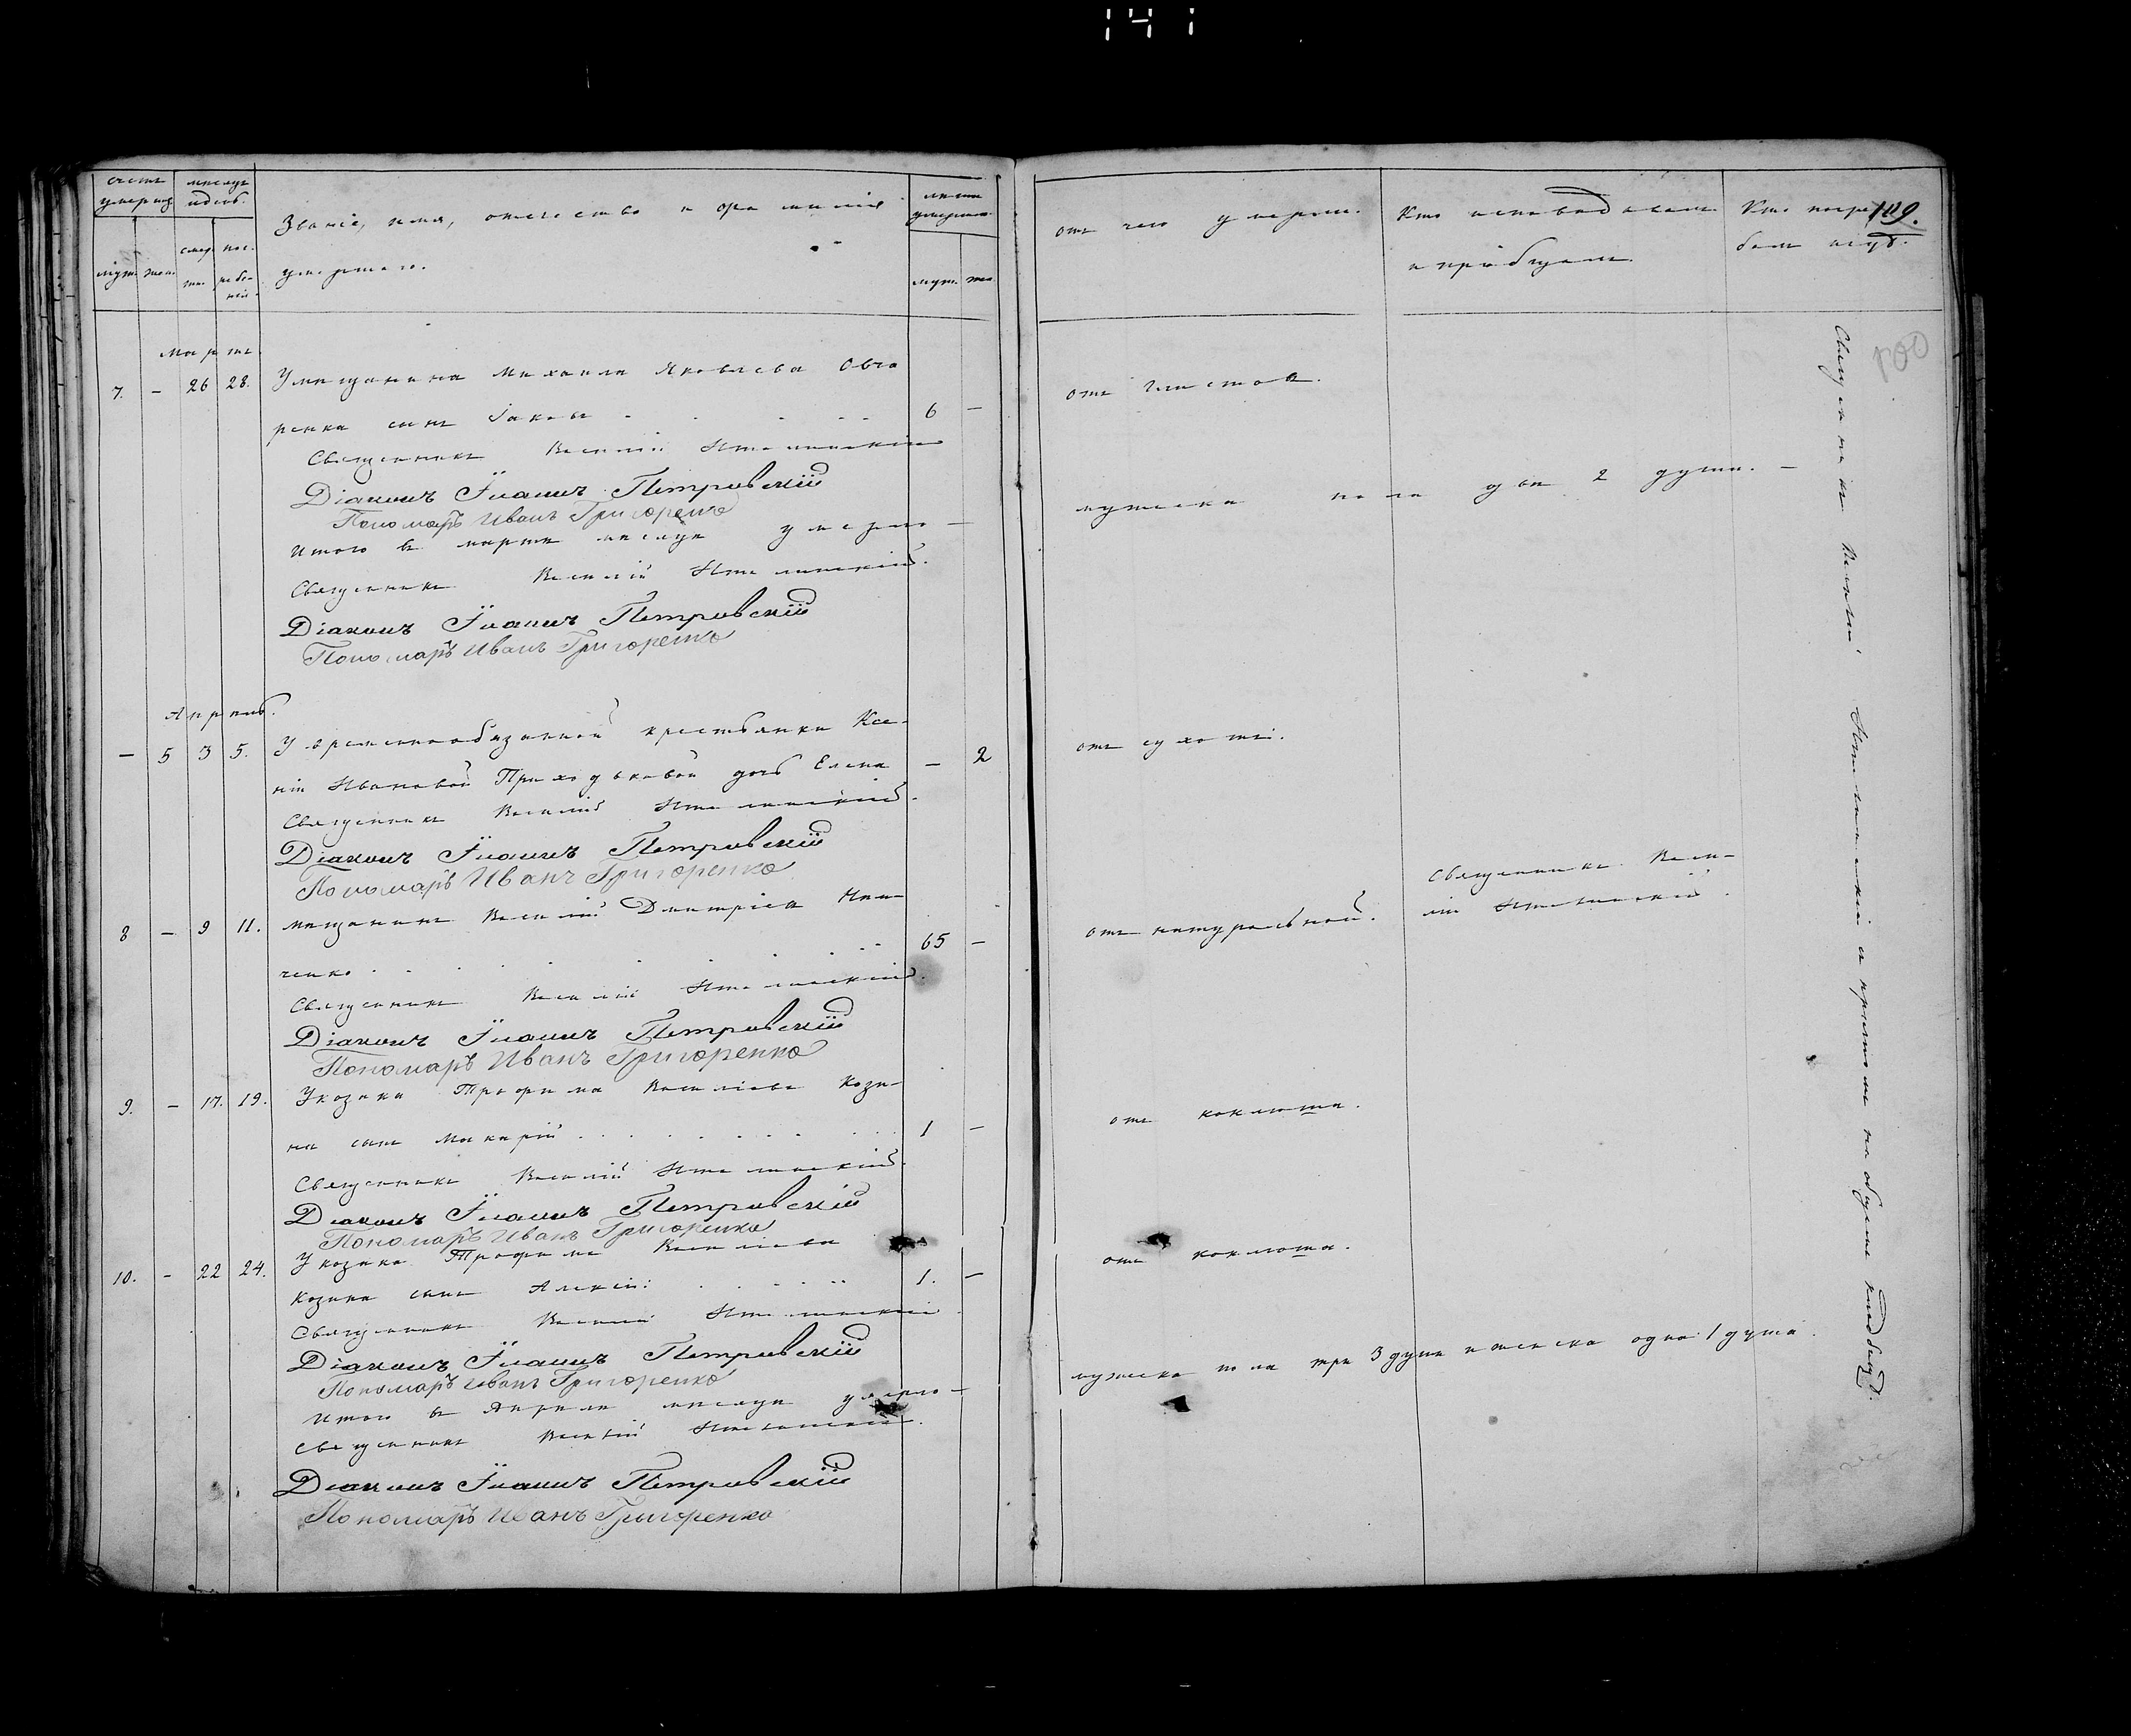 141
счетъ умершихъ
месяцъ и день.
Званіе, имя, отечество и фамилія
умершаго.
лета умершаго
муж. жен.
смер ти.
пог ребе нія.
муж. жен.
отъ чего умеръ.
Кто исповедовалъ
и пріобщалъ.
Кто погре
балъ и гдѣ.
119.
100
Мартъ.
7. – 26 28. У мещанина Михаила Яковлева Овча
ренка сынъ Іаковъ 6 – отъ глистовъ.
Священникъ Василій
Діаконъ Іоаннъ Петровскій
Пономарь Иванъ Григоренко
Итого въ марте месяце умерло – мужеска пола два 2 души. –
Священникъ Василій
Діаконъ Іоаннъ Петровскій
Пономарь Иванъ Григоренко
Апрель.
– 5 3 5. У временнообязанной крестьянки Ксе-
ніи Ивановой Приходьковой дочь Елена – 2 отъ сухоти.
Священникъ Василій
Діаконъ Іоаннъ Петровскій
Пономарь Иванъ Григоренко
8 – 9 11. мещанинъ Василій Дмитріевъ
ченко 65 – отъ натуральной. Священникъ Васи-
лій
Священникъ Василій
Діаконъ Іоаннъ Петровскій
Пономарь Иванъ Григоренко
9. – 17. 19. У козака Трофима Васильева Кози-
на сынъ Макарій 1 – отъ коклюша.
Священникъ Василій
Діаконъ Іоаннъ Петровскій
Пономарь Иванъ Григоренко
10. – 22 24. У козака Трофима Васильева
Козина сынъ Алексій 1. – отъ коклюша.
Священникъ Василій
Діаконъ Іоаннъ Петровскій
Пономарь Иванъ Григоренко
Итого въ Апреле месяце умерло – мужеска пола три 3 души и женска одна 1 душа.
Священникъ Василій
Діаконъ Іоаннъ Петровскій
Пономарь Иванъ Григоренко
Священникъ Василій съ причтомъ на общемъ кладбищѣ.